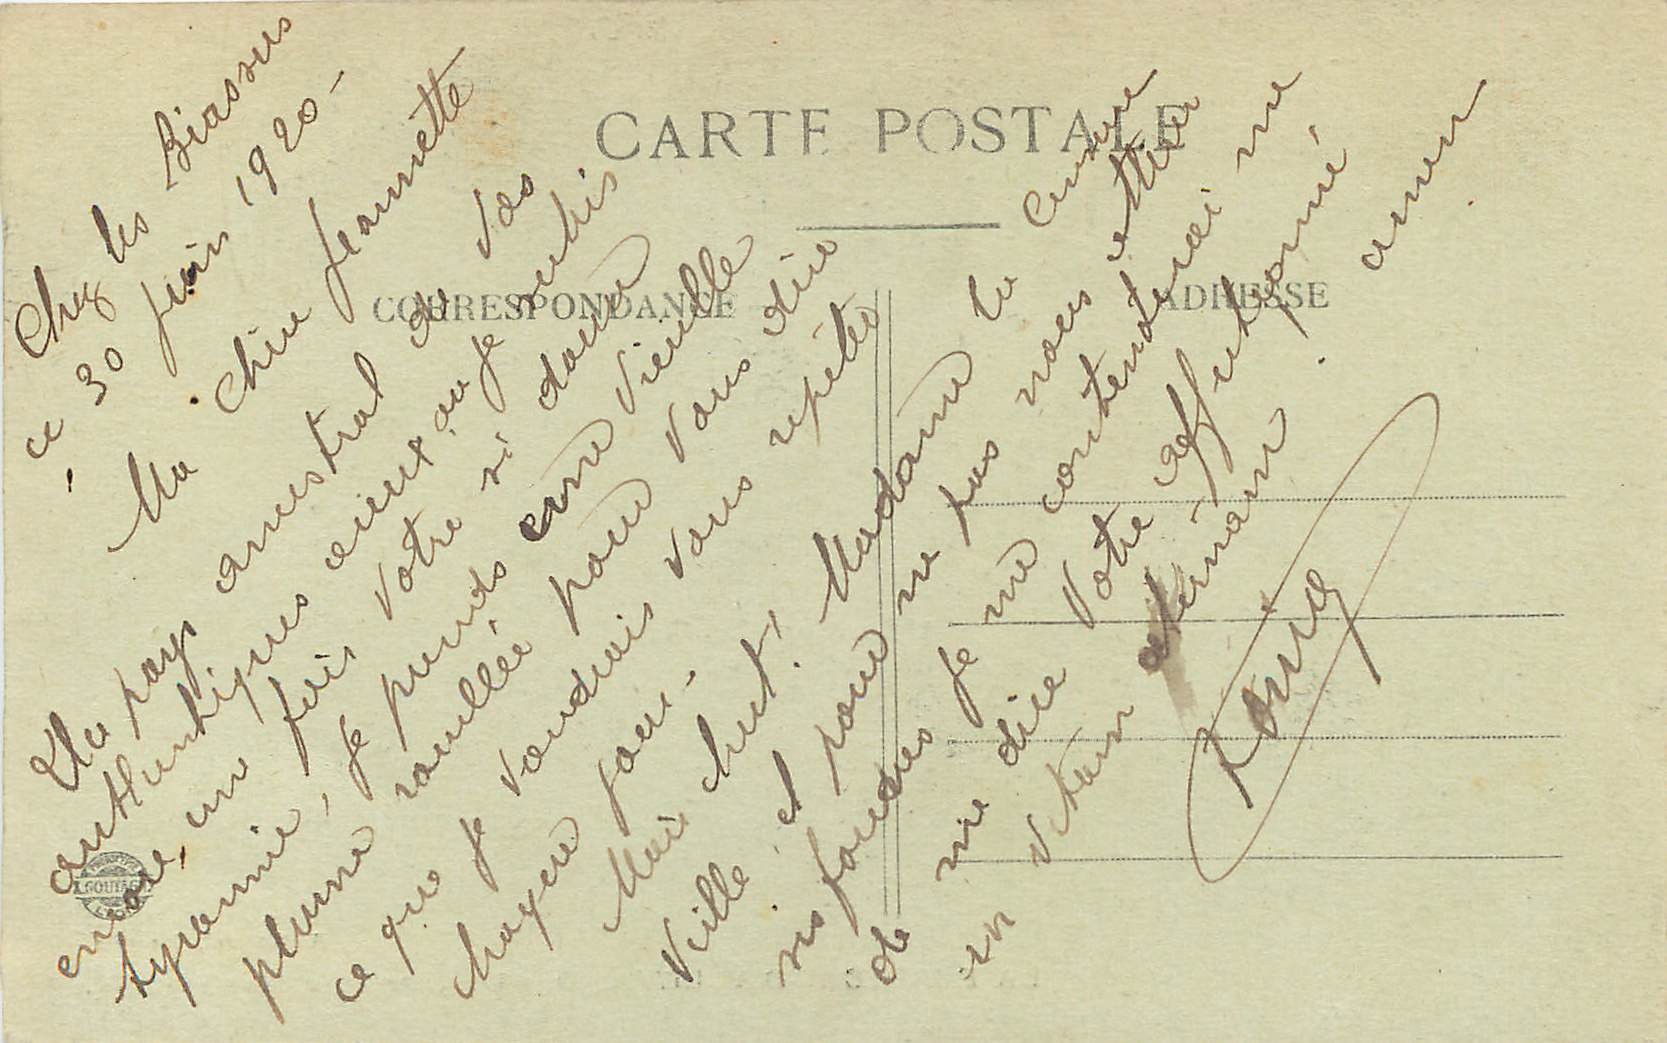 CARTE POSTALE
CORRESPONDANCE
ADRESSE
Chez les Biassus
ce 30 juin 1920 -
Ma chère Jeannette
Du pays ancestral de vos
authentiques aieux où je subis
encore, une fois votre si douce
tyrannie, je prends une vieille
plume rouillée pour vous dire
ce que je voudrais vous répéter
chaque jour.
Mais chut! Madame la Censure
veille et pour ne pas nous attirer
ses foudres je me contenterai ne
de me dire Votre affectionné
en